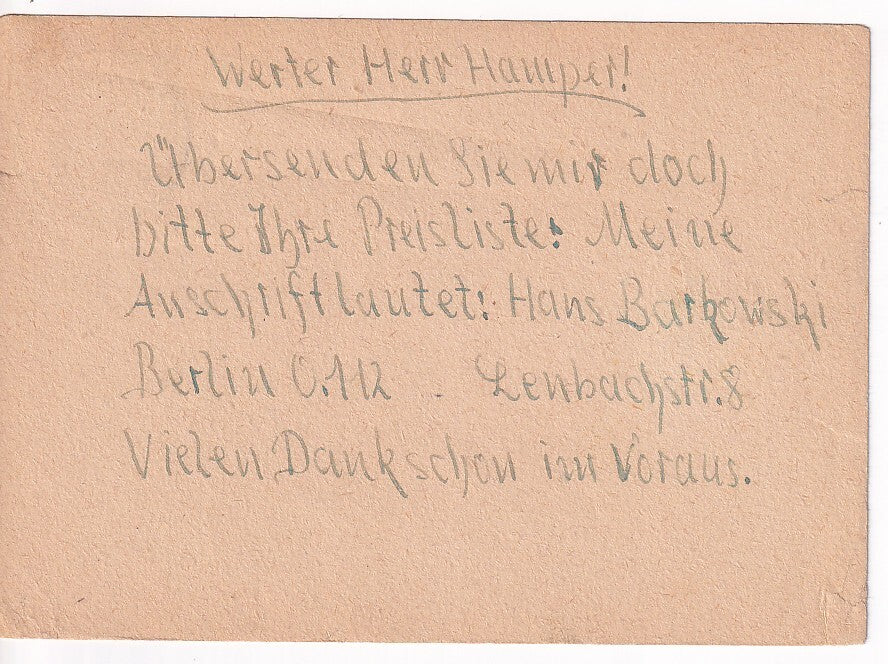 Werter Herr Hamper!
Übersenden Sie mir doch
bitte Ihre Preisliste: Meine
Anschrift lautet: Hans Barkowski
Berlin O.112 - Lenbachstr.8
Vielen Dank schon im Voraus.